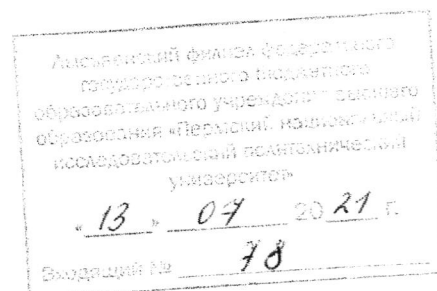 Лысьвенский филиал федерального
государственного бюджетного
образовательного учреждения высшего
образования «Пермский национальный
исследовательский политехнический
университет»
« 13 » 07 20 21 г.
Входящий № 78